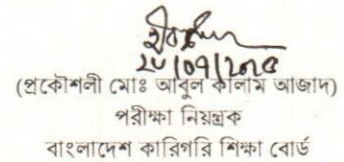 ২৮/০৭/২০২৫
(প্রকৌশলী মোঃ আবুল কালাম আজাদ)
পরীক্ষা নিয়ন্ত্রক
বাংলাদেশ কারিগরি শিক্ষা বোর্ড